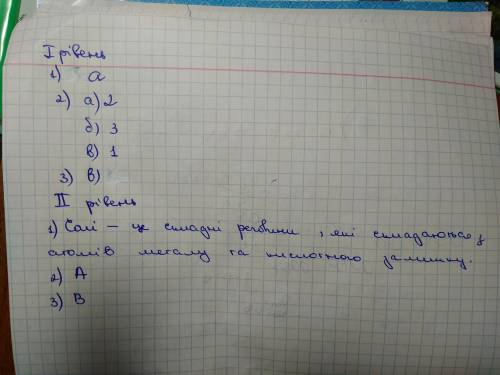 І рівень
1) а
2) а) 2
б) 3
в) 1
3) в)
ІІ рівень
1) Солі — це складні речовини, які складаються з
атомів металу та кислотного залишку.
2) А
3) В